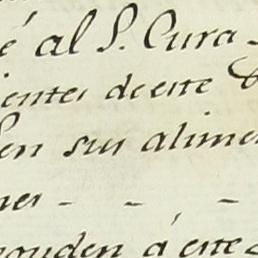 é al S. Cura -
ientes de este
en sus alimen
nes - - -
ponden á este